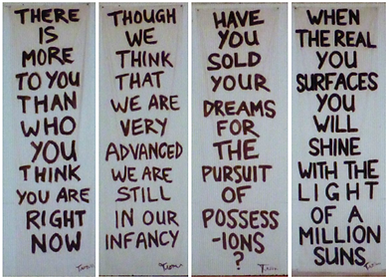 THERE
IS
MORE
TO YOU
THAN
WHO
YOU
THINK
YOU ARE
RIGHT
NOW
THOUGH
WE
THINK
THAT
WE ARE
VERY
ADVANCED
WE ARE
STILL
IN OUR
INFANCY
HAVE
YOU
SOLD
YOUR
DREAMS
FOR
THE
PURSUIT
OF
POSSESS
-IONS
?
WHEN
THE REAL
YOU
SURFACES
YOU
WILL
SHINE
WITH THE
LIGHT
OF A
MILLION
SUNS